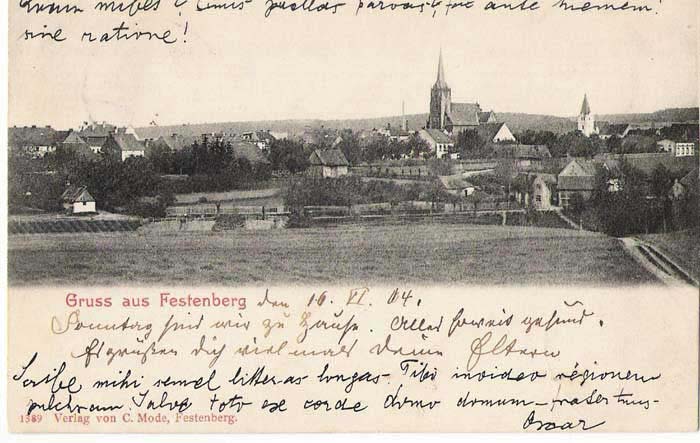 miles ? puellas parvas, ante hiemem!
sine ratione!
Gruss aus Festenberg den 16. VI. 04.
Sonntag sind wir zu Hause. Alles soweit gesund.
Es grüßen Dich vielmals deine Eltern
Scribe mihi semel litteras longas. Tibi invideo regionem
pulchram Salve toto ex corde domo domum – frater tuus –
Oscar
1389 Verlag von C. Mode, Festenberg.